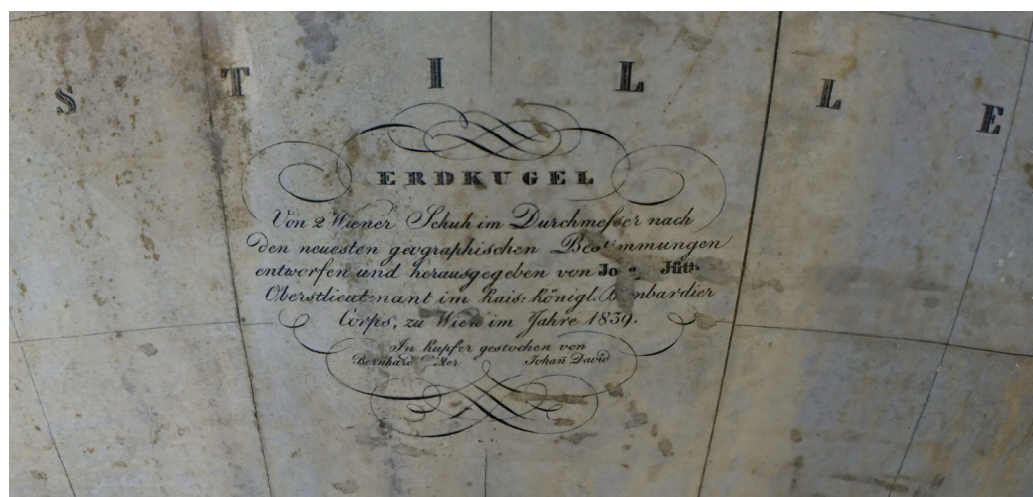 S T I L L E
ERDKUGEL
Von 2 Wiener Schuh im Durchmesser nach
den neuesten geographischen Bestimmungen
entworfen und herausgegeben von
Oberstlieutenant im Kais: Königl. Bombardier
Corps, zu Wien im Jahre 1839.
In Kupfer gestochen von
Bernhard Johañ David